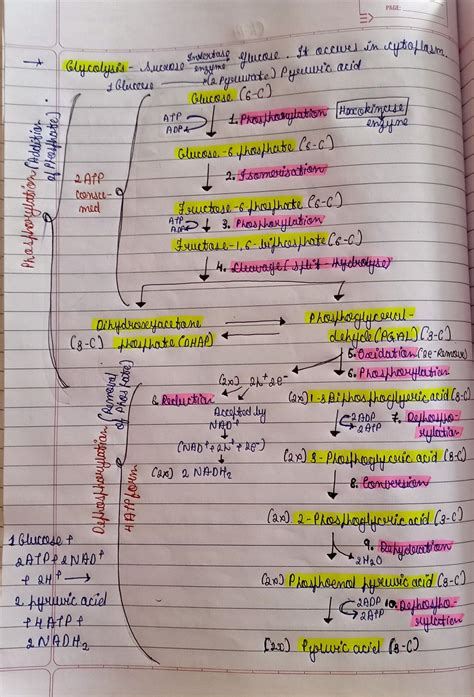 PAGE:
Glycolysis - Sucrose Invertase enzyme Glucose. It occurs in cytoplasm.
1 Glucose (2 Pyruvate) Pyruvic acid
Glucose (6-C)
ATP
ADP
1. Phosphorylation
Hexokinese enzyme
Glucose-6 phosphate (6-C)
2. Isomerisation
Fructose-6 phosphate (6-C)
ATP
ADP
3. Phosphorylation
Fructose-1,6-biphosphate (6-C)
4. Cleavage (split-Hydrolyse)
Phosphorylation (Addition of Phosphate)
2 ATP consumed
Dihydroxyacetone phosphate (DHAP)
(3-C)
Phosphoglyceral-
dehyde (PGAL) (3-C)
5. Oxidation (Re-Remove)
6. Phosphorylation
(2x) 2H+ 2e-
6. Reduction
(2x) 1-3 Biphosphoglyceric acid (3-C)
Accepted by
NAD+
2ADP
2ATP
7. Dephospho-
rylation
(NAD+ + 2H+ + 2e-)
(2x) 2 NADH2
(2x) 3-Phosphoglyceric acid (3-C)
8. Conversion
(2x) 2-Phosphoglyceric acid (3-C)
9. Dehydration
2H2O
(2x) Phosphoenol pyruvic acid (3-C)
2ADP
2ATP
10. Dephospho-
rylation
(2x) Pyruvic acid (3-C)
Dephosphorylation (Removal of Phosphate)
4 ATP form
1 Glucose +
2ATP + 2NAD+
+ 2H+ →
2 pyruvic acid
+ 4ATP +
2NADH2